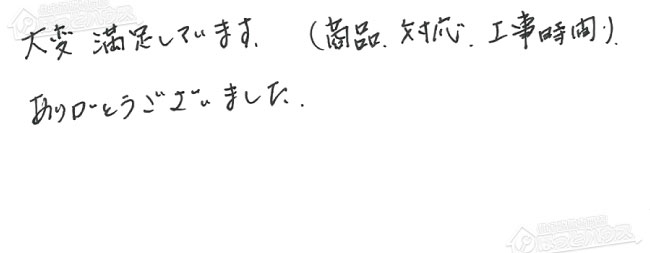 大変満足しています。(商品、対応、工事時間)。
ありがとうございました。